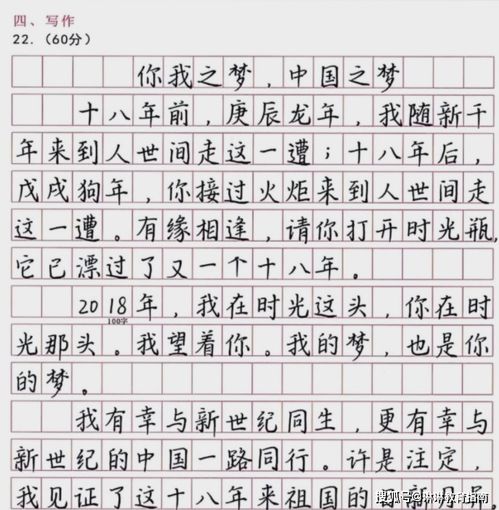 四、写作
22.（60分）
你我之梦，中国之梦
十八年前，庚辰龙年，我随新千
年来到人世间走这一遭；十八年后，
戊戌狗年，你接过火炬来到人世间走
这一遭。有缘相逢，请你打开时光瓶，
它已漂过了又一个十八年。
2018年，我在时光这头，你在时
100字
光那头。我望着你。我的梦，也是你
的梦。
我有幸与新世纪同生，更有幸与
新世纪的中国一路同行。许是注定，
我见证了这十八年来祖国的日新月异，
搜狐号@琳琳教育指南